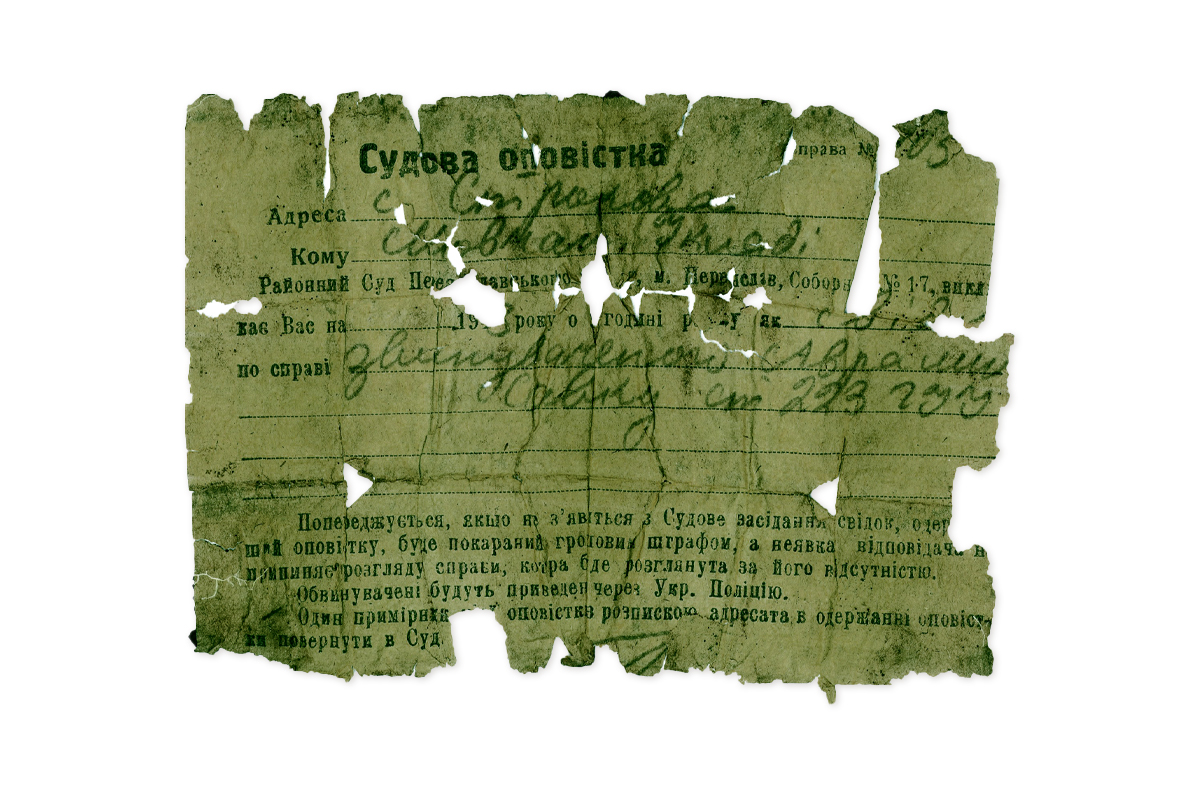 Судова оповістка
права № 03
Адреса с. Строкова
Кому
Районний Суд м. Переяслав, Собор № 17, викл
кає Вас на 19 року о годині як
по справі звинувачення
Савку ст 223
Попереджується, якщо не з'явіться з Судове засідання свідок, одер
ший оповістку, буде покараний грошовим штрафом, а неявка відповідача н
припиняє розгляду справи, котра бде розглянута за його відсутністю.
Обвинувачені будуть приведені через Укр. Поліцію.
Один примірник оповістки з розпискою адресата в одержанні оповіст-
ки повернути в Суд.